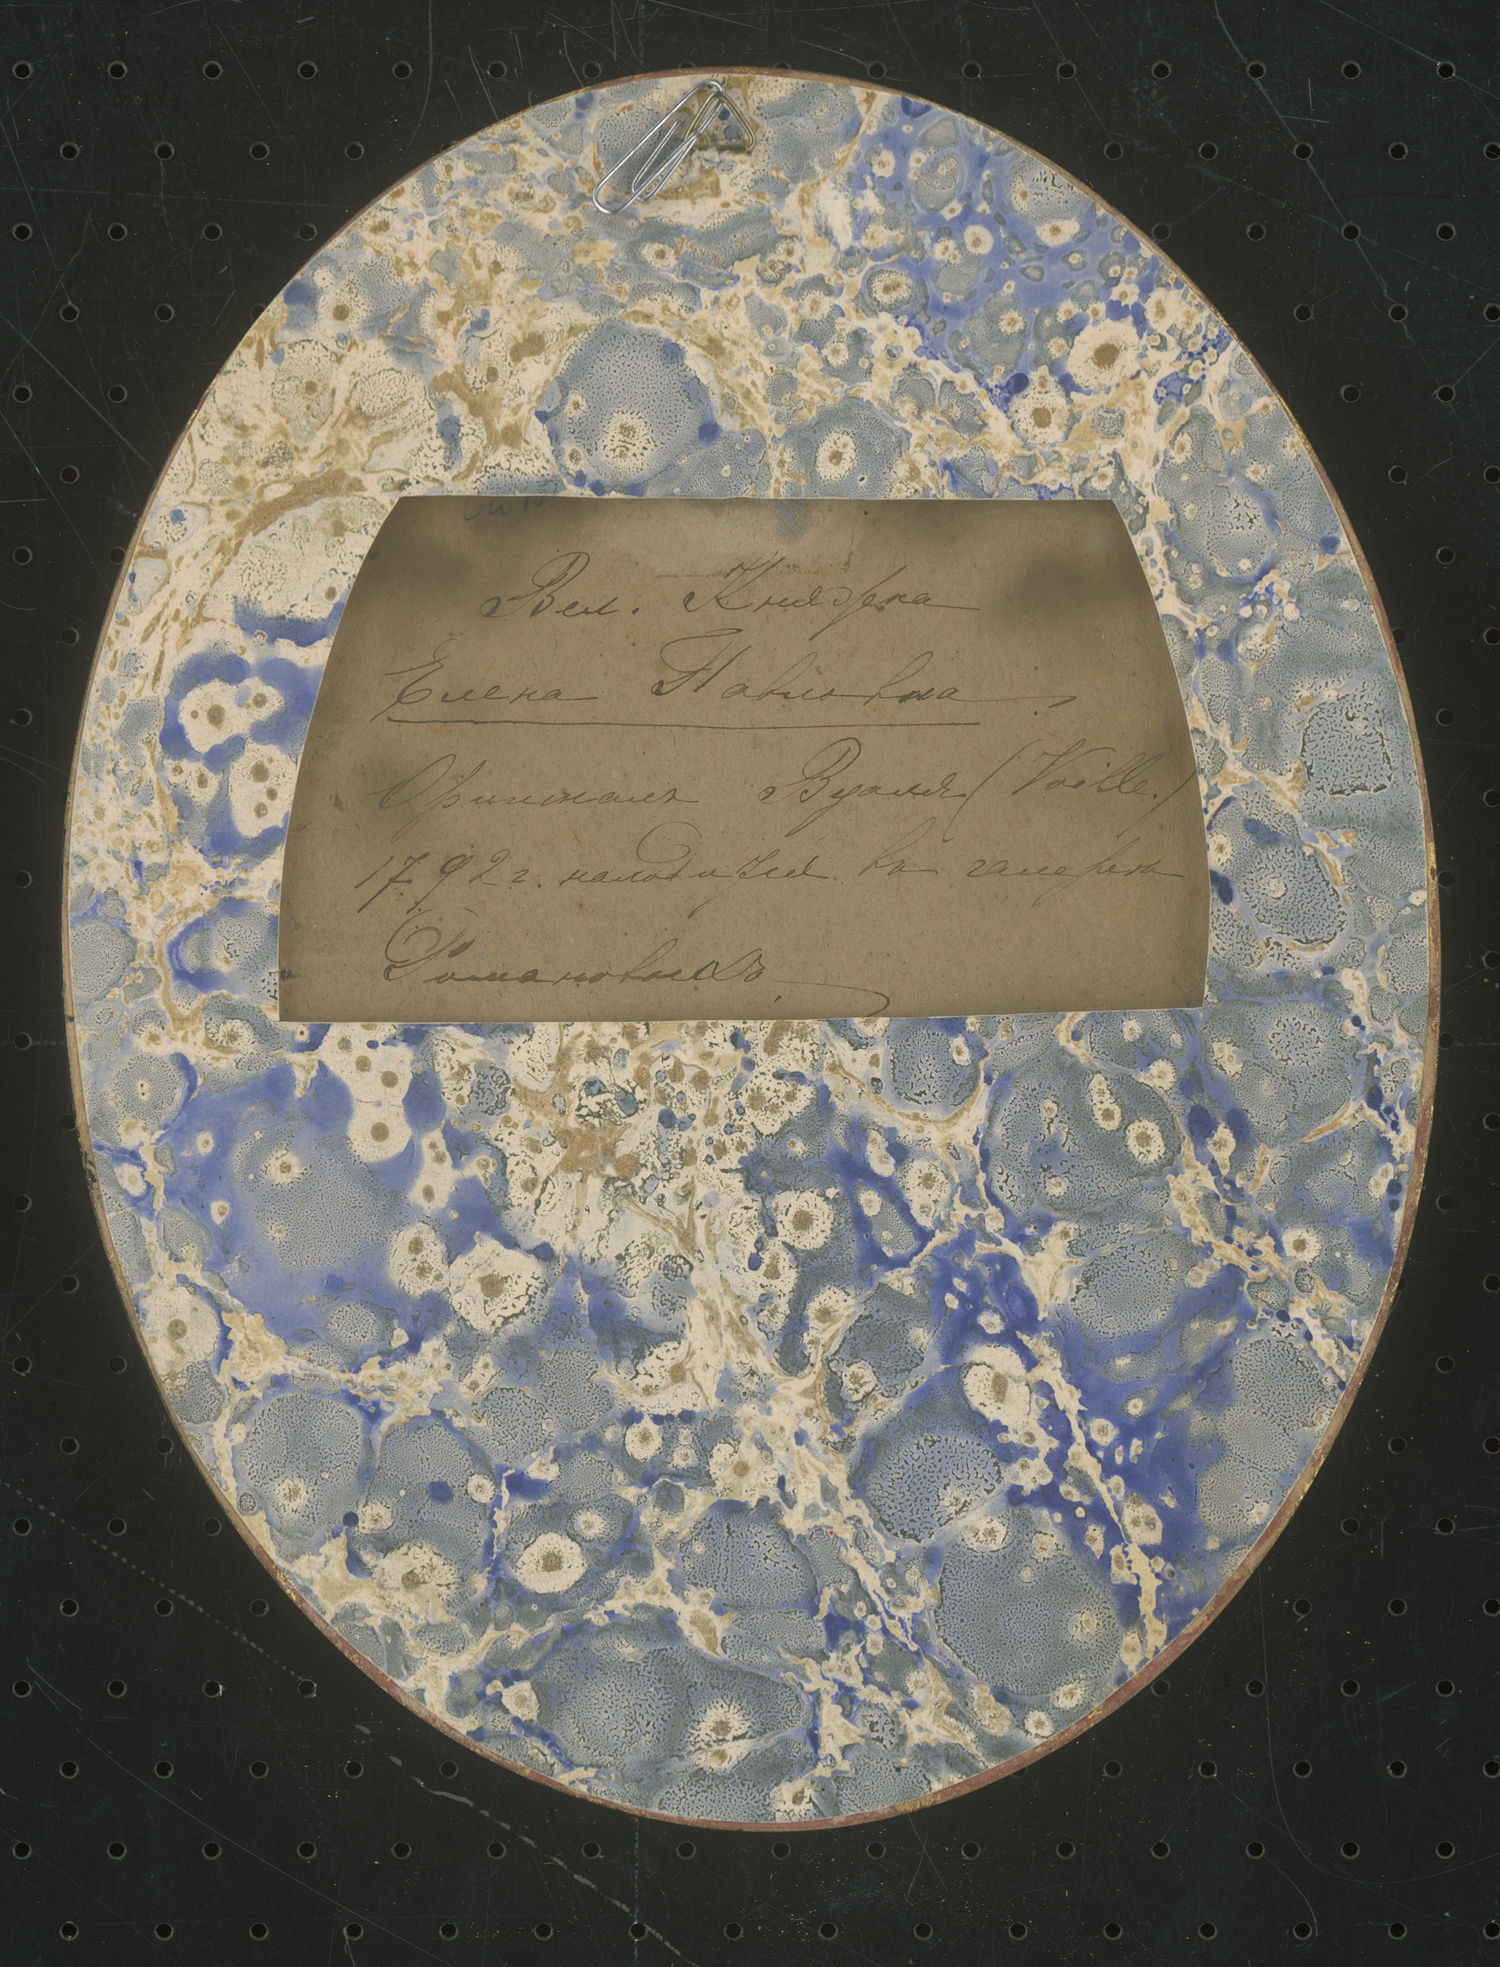 Вел. Княжна
Елена Павловна.
Оригиналъ Вуаля (Voille.)
1792 г. находится въ галереѣ
Романовыхъ